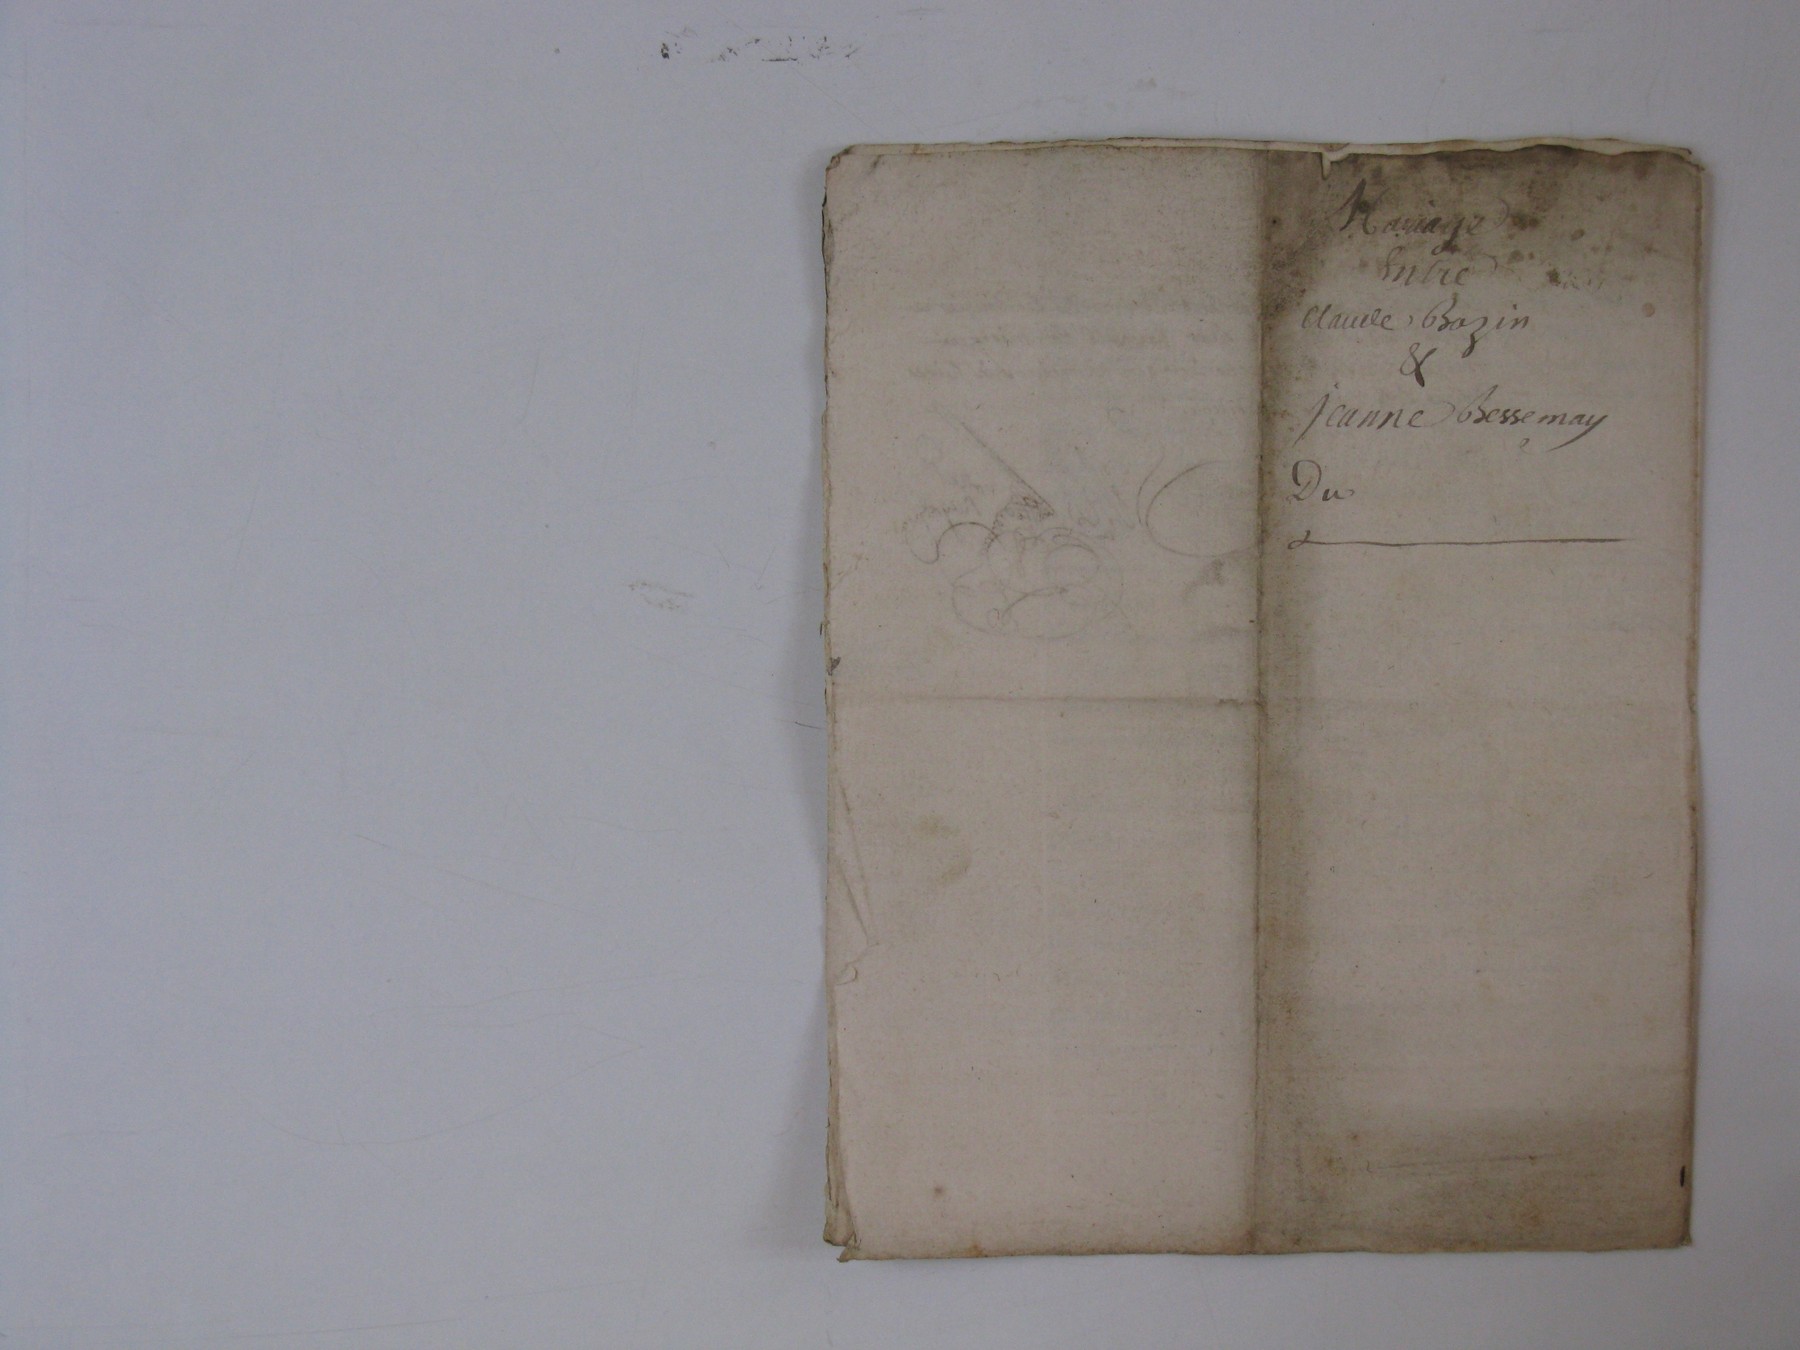 Mariage
Entre
Claude Bazin
&
jeanne Bessemay
Du